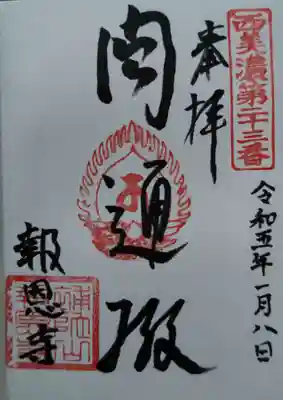 西美濃第二十三番
奉拝
令和五年一月八日
圓通殿
報恩寺